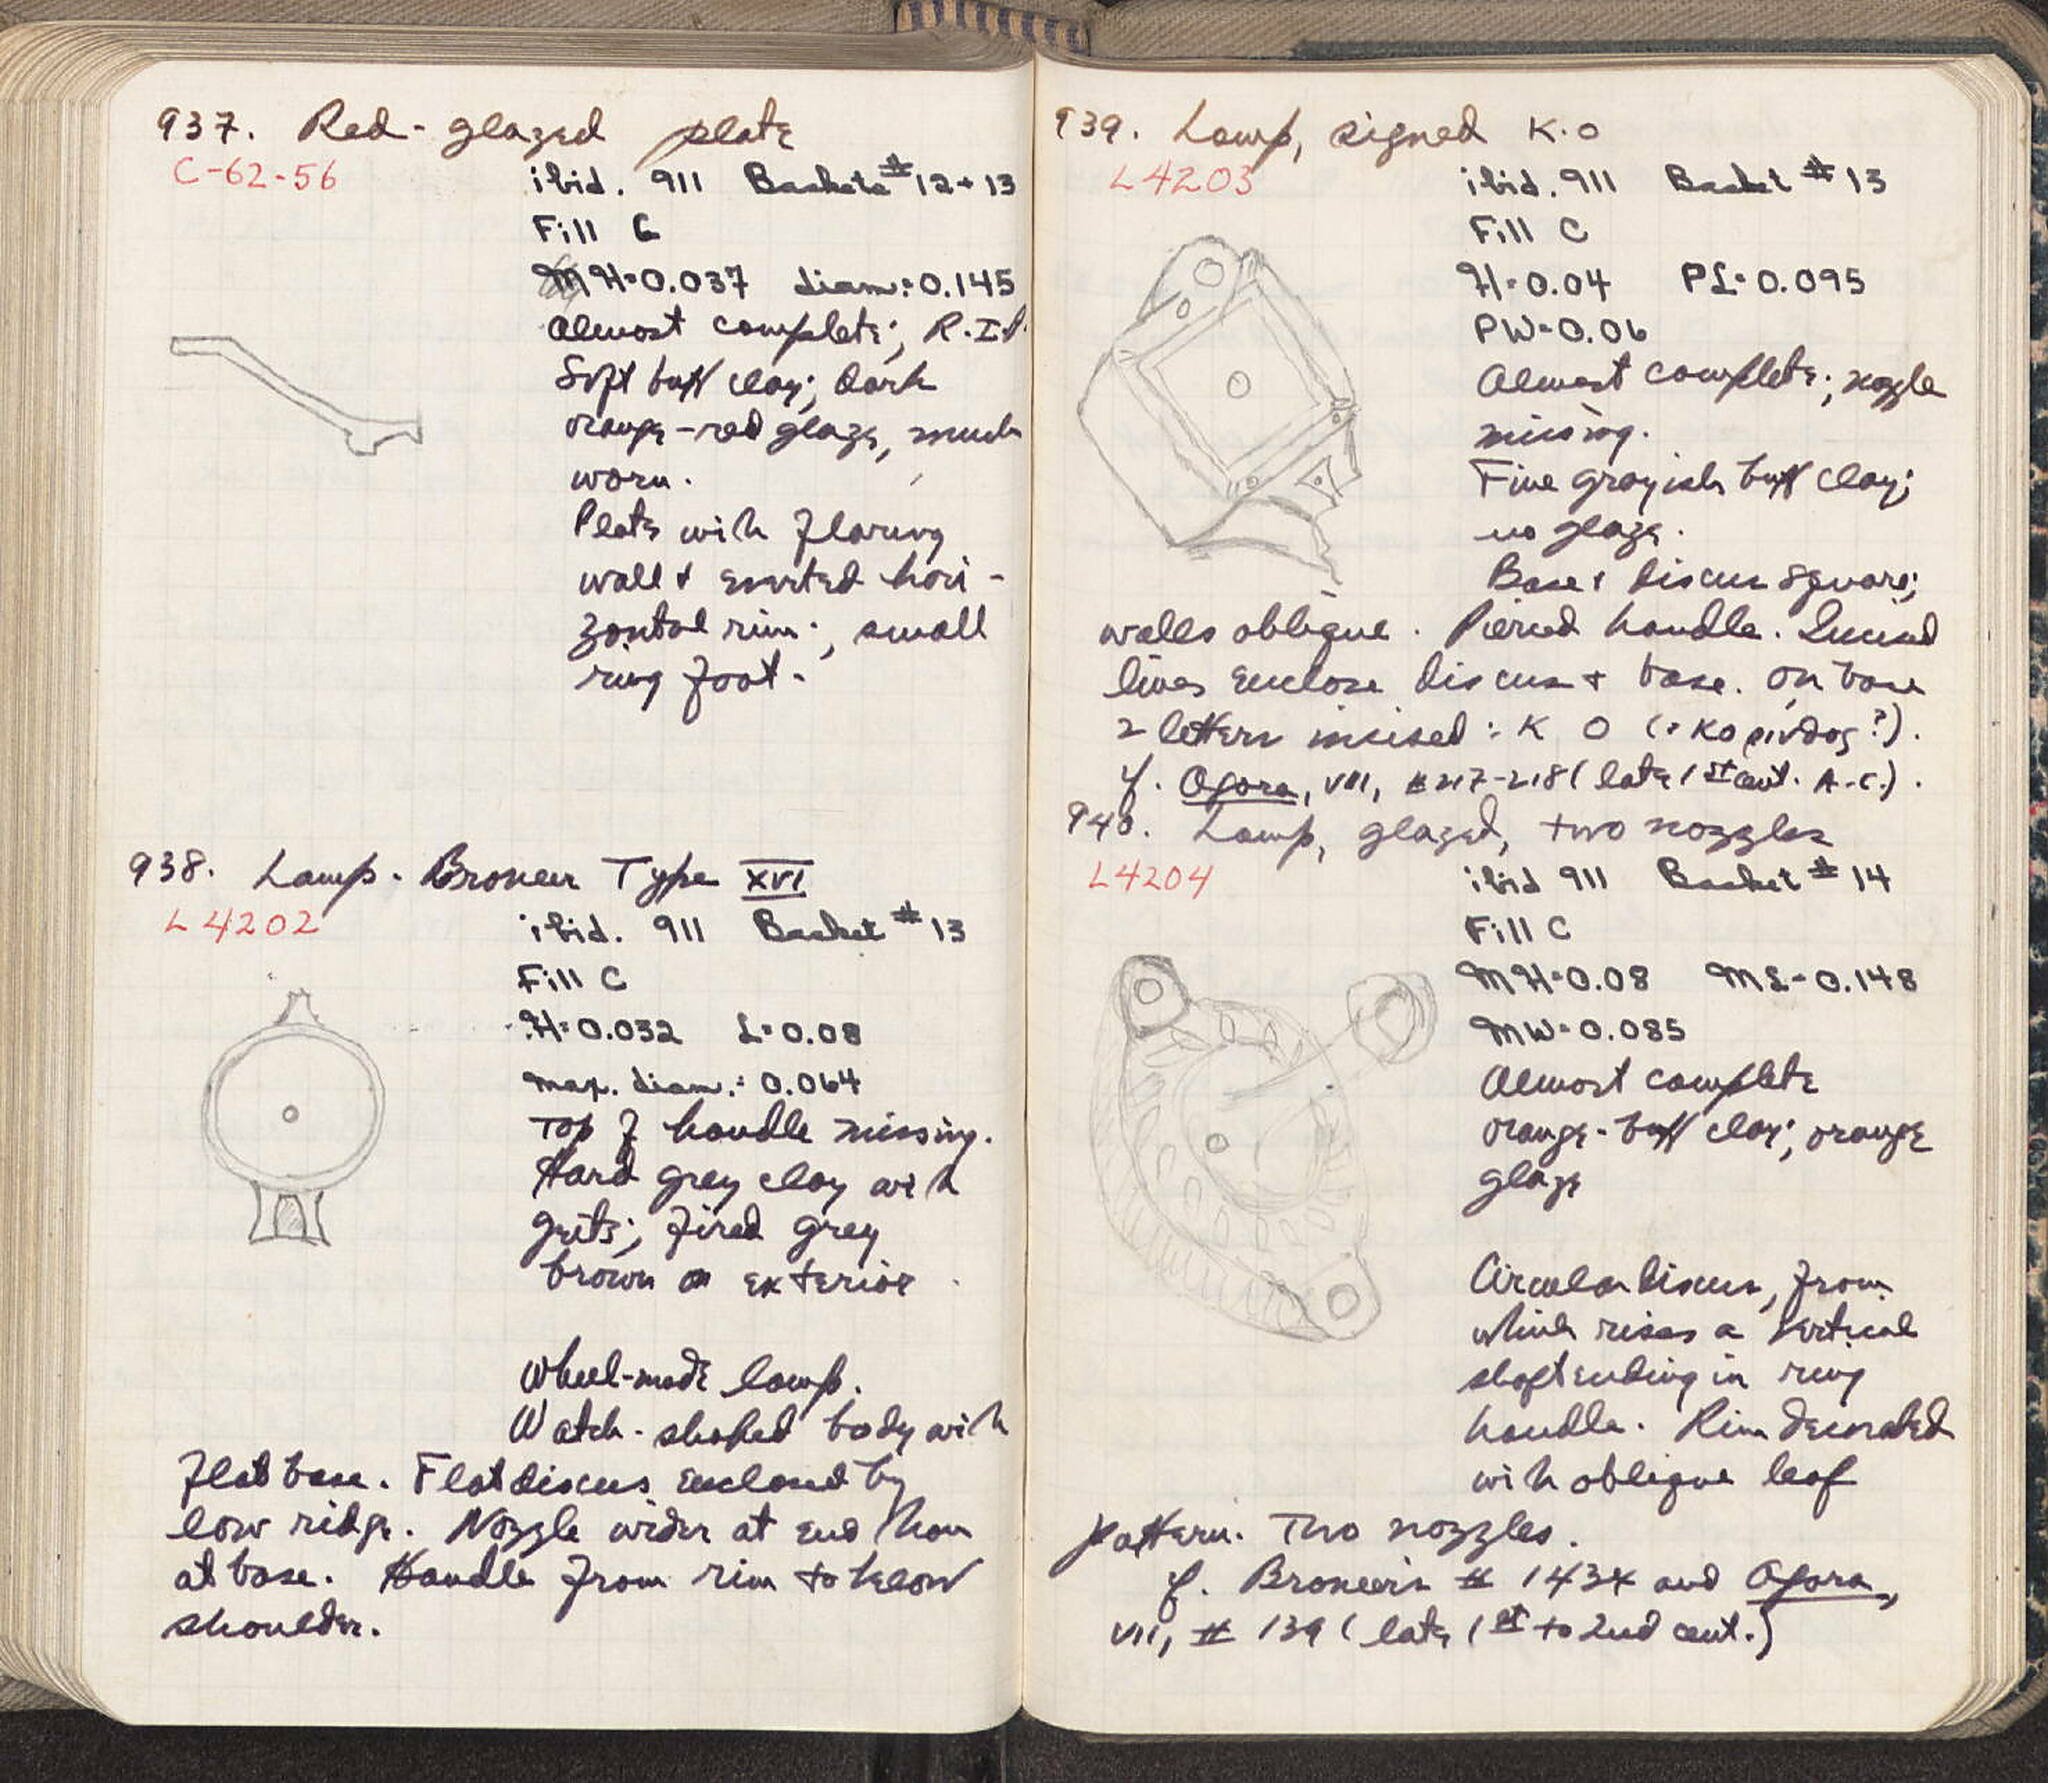 937. Red-glazed plate
C-62-56
ibid. 911 Baskets #12+13
Fill C
H=0.037 diam.: 0.145
Almost complete; R.I.P.
Soft buff clay; dark
orange-red glaze, much
worn.
Plate with flaring
wall + everted hori-
zontal rim; small
ring foot.
938. Lamp - Broneer Type XVI
L 4202
ibid. 911 Basket #13
Fill C
H=0.032 L=0.08
max. diam.: 0.064
Top of handle missing.
Hard grey clay with
grits; fired grey
brown on exterior.
Wheel-made lamp.
Watch-shaped body with
flat base. Flat discus enclosed by
low ridge. Nozzle wider at end than
at base. Handle from rim to below
shoulder.
939. Lamp, signed K.O
L4203
ibid. 911 Basket #13
Fill C
H=0.04 PL=0.095
PW=0.06
Almost complete; nozzle
missing.
Fine grayish buff clay;
no glaze.
Base + discus square;
walls oblique. Pierced handle. Incised
lines enclose discus + base. On base
2 letters incised: K O (= Κοσίνδος?).
cf. Agora, VII, #217-218 (late 1st cent. A.C.).
940. Lamp, glazed, two nozzles
L4204
ibid 911 Basket #14
Fill C
MH=0.08 ML=0.148
MW=0.085
Almost complete
orange-buff clay; orange
glaze
Circular discus, from
which rises a vertical
shaft ending in ring
handle. Rim decorated
with oblique leaf
pattern. Two nozzles.
cf. Broneer's # 1434 and Agora,
VII, # 139 (late 1st to 2nd cent.)